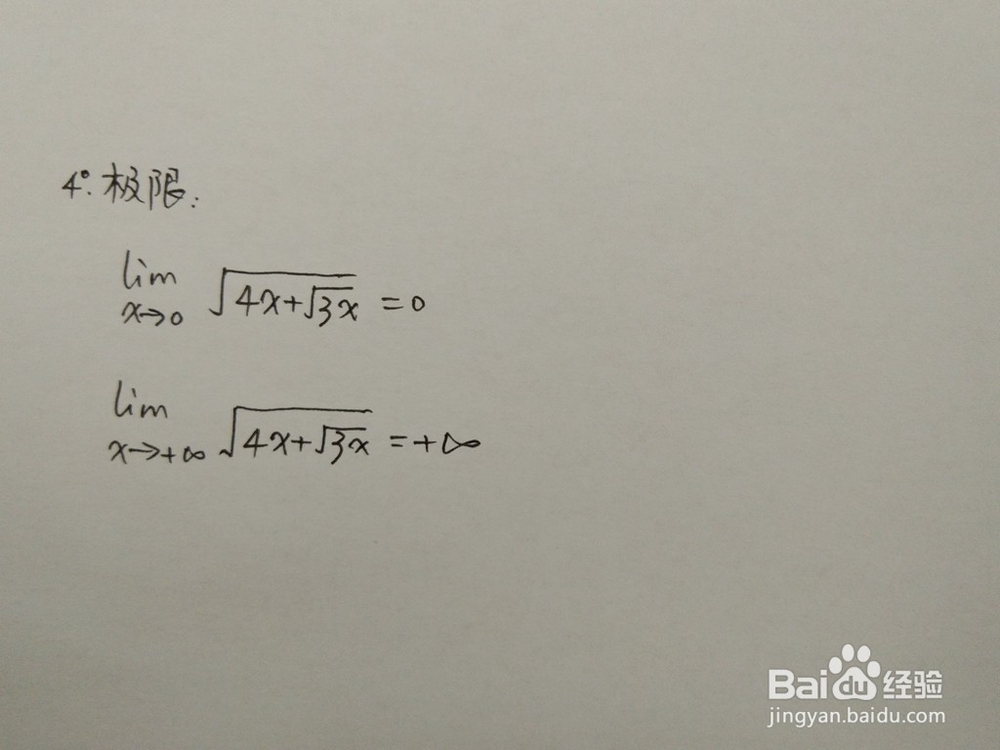 4°. 极限:
lim x→0 √(4x+√(3x)) = 0
lim x→+∞ √(4x+√(3x)) = +∞
Baidu 经验
jingyan.baidu.com